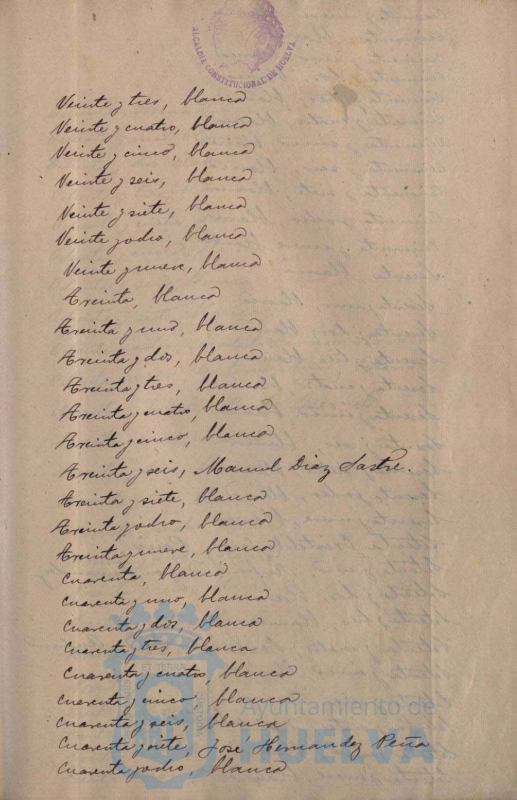 ALCALDIA CONSTITUCIONAL DE HUELVA
Veinte y tres, blanca
Veinte y cuatro, blanca
Veinte y cinco, blanca
Veinte y seis, blanca
Veinte y siete, blanca
Veinte y ocho, blanca
Veinte y nueve, blanca
Treinta, blanca
Treinta y uno, blanca
Treinta y dos, blanca
Treinta y tres, blanca
Treinta y cuatro, blanca
Treinta y cinco, blanca
Treinta y seis, Manuel Diaz Sastre.
Treinta y siete, blanca
Treinta y ocho, blanca
Treinta y nueve, blanca
Cuarenta, blanca
Cuarenta y uno, blanca
Cuarenta y dos, blanca
Cuarenta y tres, blanca
Cuarenta y cuatro, blanca
Cuarenta y cinco, blanca
Cuarenta y seis, blanca
Cuarenta y siete, Jose Hernandez Peña
Cuarenta y ocho, blanca
Ayuntamiento de
HUELVA